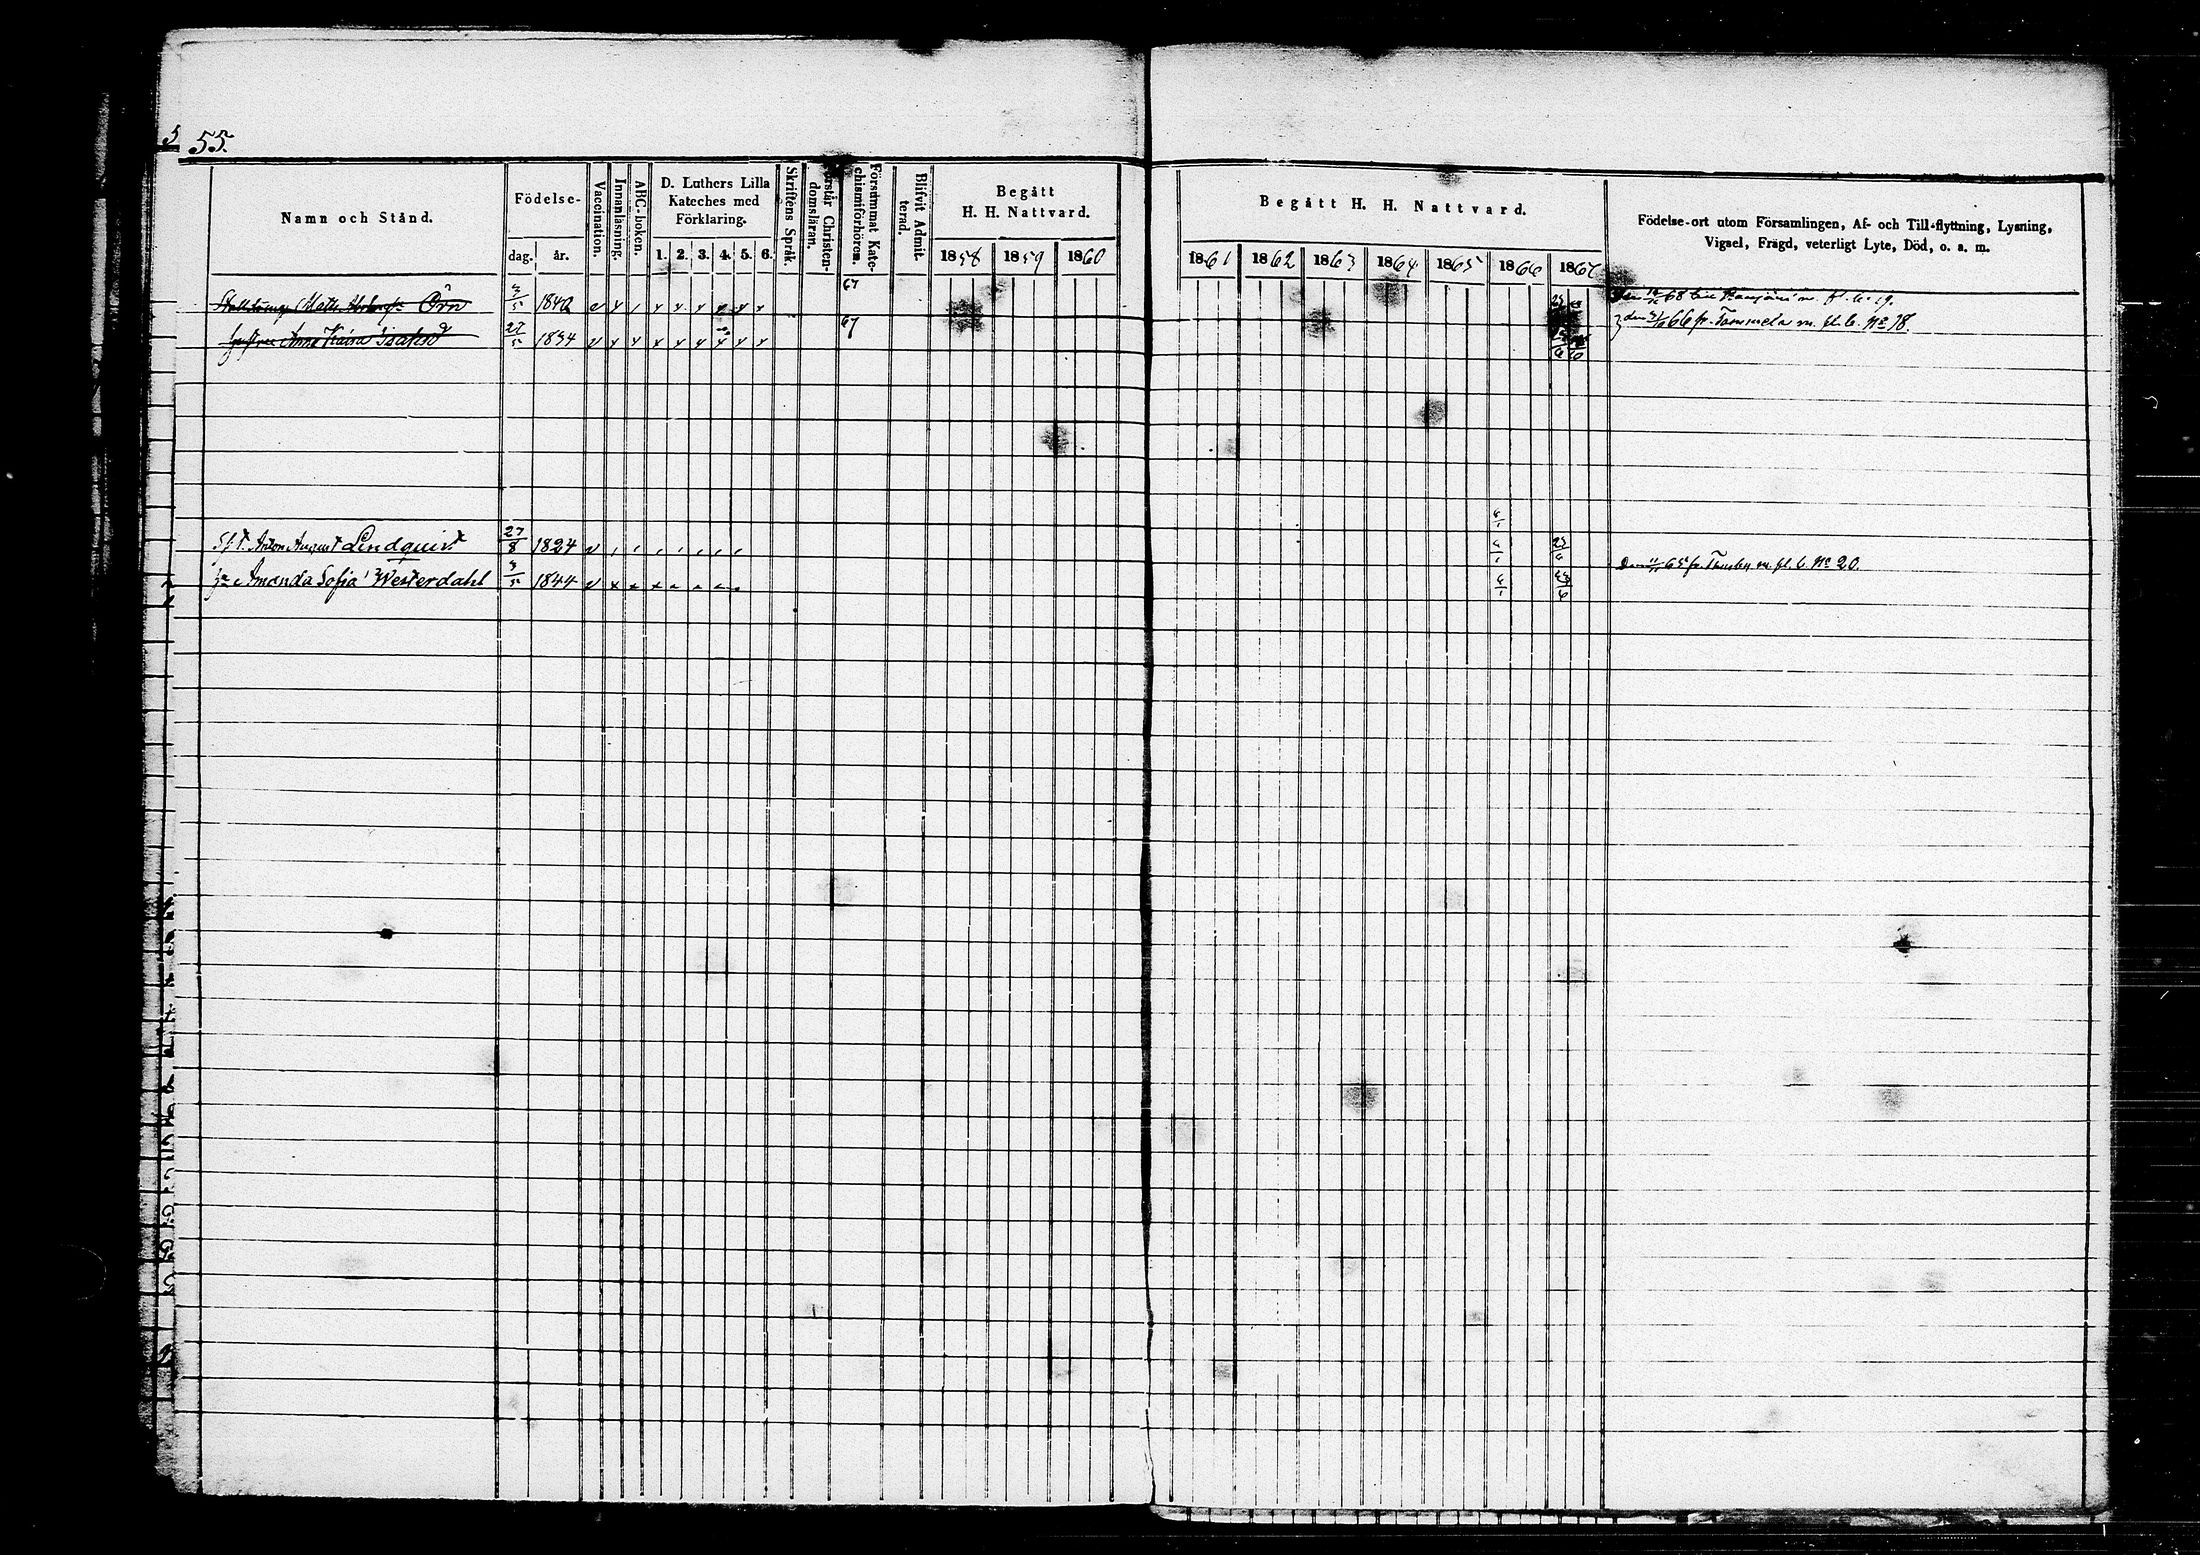 55.
Namn och Stånd.
Födelse-
dag. år.
Vaccination.
Innanläsning.
ABC-boken.
D. Luthers Lilla
Kateches med
Förklaring.
1. 2. 3. 4. 5. 6.
Skriftens Språk.
Förstår Christen-
domsläran.
Försummat Kate-
chismiförhören.
Blifvit Admit-
terad.
Begått
H. H. Nattvard.
1858 1859 1860
Begått H. H. Nattvard.
1861 1862 1863 1864 1865 1866 1867
Födelse-ort utom Församlingen, Af- och Till-flyttning, Lysning,
Vigsel, Frägd, veterligt Lyte, Död, o. s. m.
Matts Örn 3/5 1840 67 68 till m. fl. b. 19.
Anna Kaisa Isaksd 27/5 1834 67 den 66 fr. Tammela m. fl. b. No 18.
Anton August Lindqvist 27/8 1824
Amanda Sofia Westerdahl 3/5 1844 65 fr. m. fl. b. No 20.